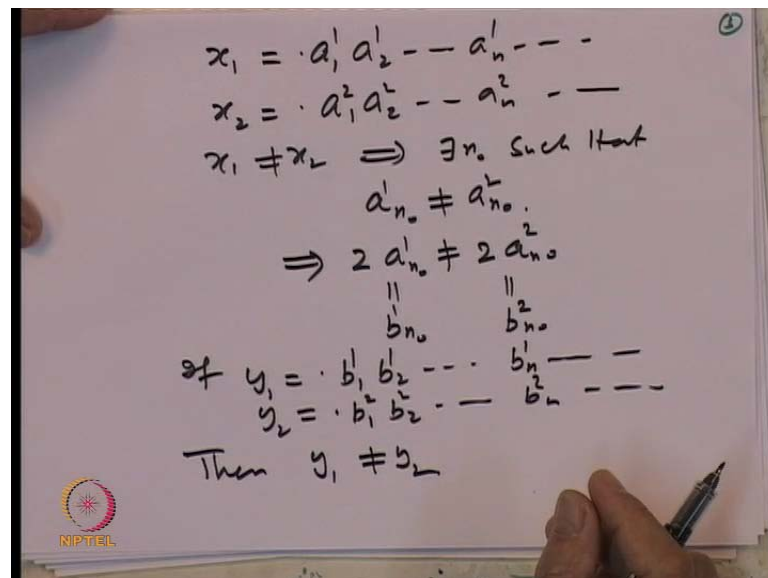 ①
x₁ = .a₁¹ a₂¹ - - aₙ¹ - - -
x₂ = .a₁² a₂² - - aₙ² - —
x₁ ≠ x₂ ⟹ ∃ n₀ such that
a¹ₙ₀ ≠ a²ₙ₀.
⟹ 2 a¹ₙ₀ ≠ 2 a²ₙ₀
|| ||
b¹ₙ₀ b²ₙ₀
If y₁ = .b₁¹ b₂¹ - - - bₙ¹ — —
y₂ = .b₁² b₂² - — bₙ² - - -
Then y₁ ≠ y₂
NPTEL